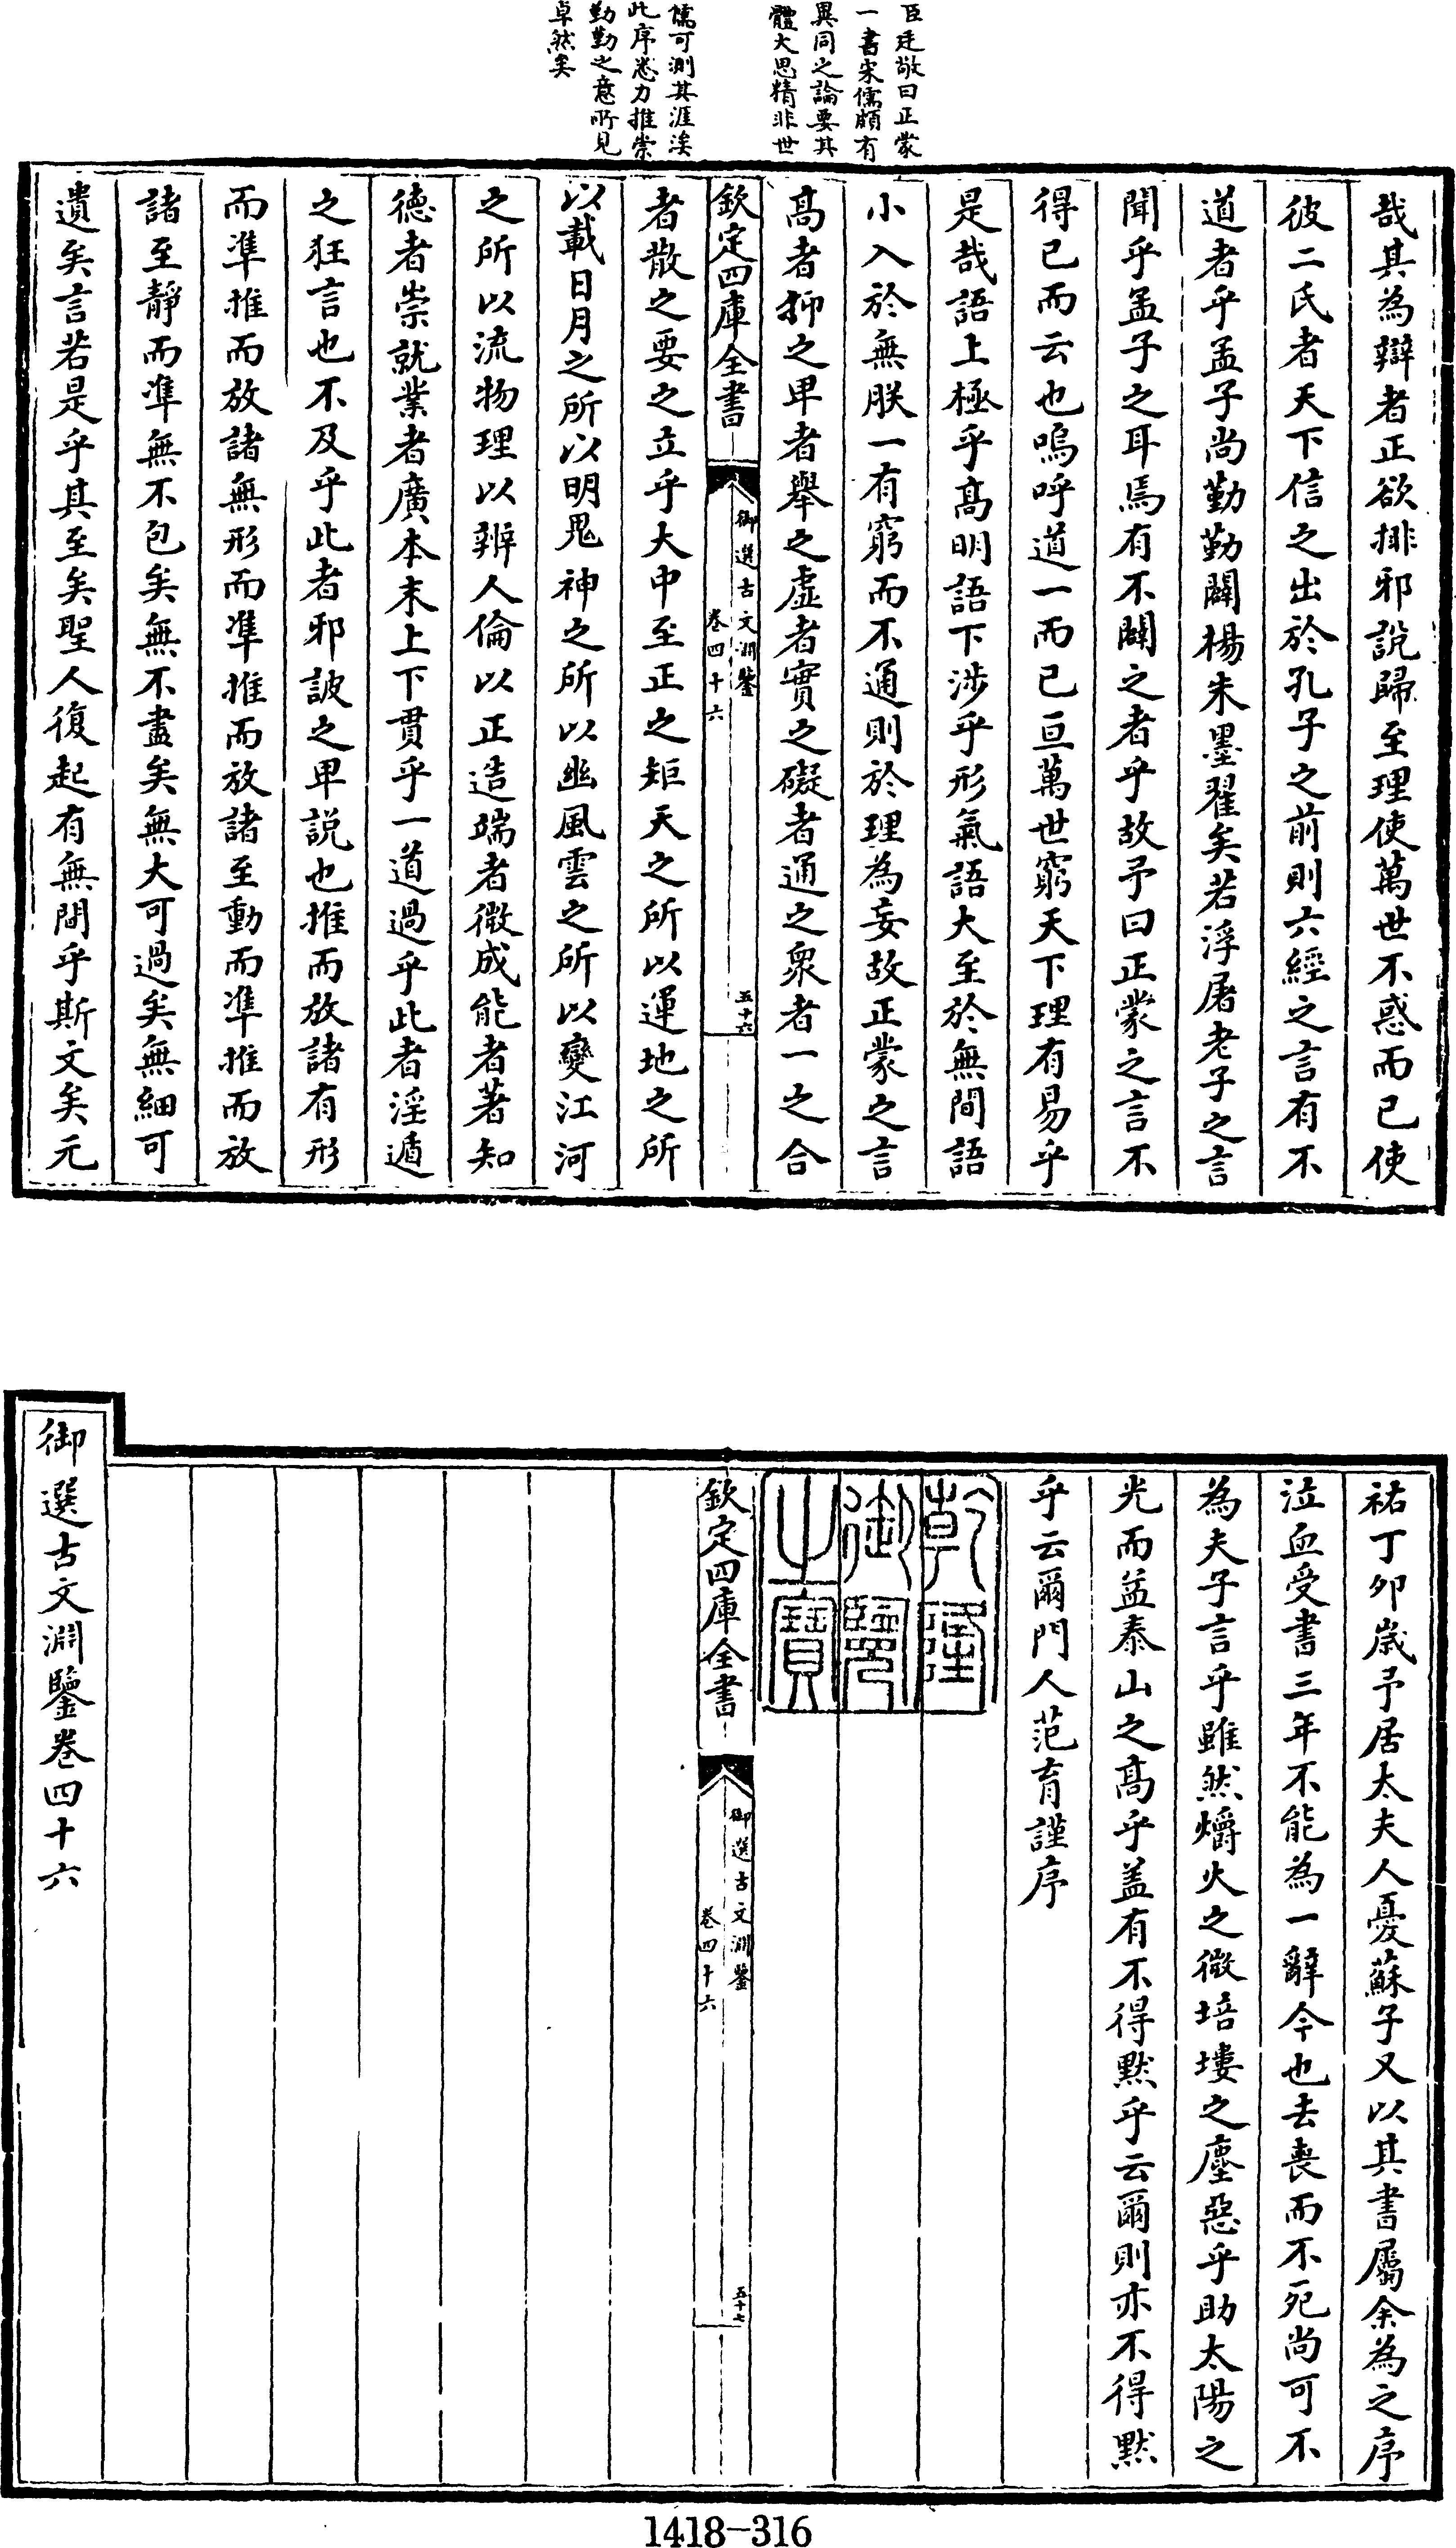 臣廷敬曰正蒙
一書宋儒頗有
異同之論要其
體大思精非世
儒可測其涯涘
此序悉力推崇
勤勤之意所見
卓然矣
哉其為辯者正欲排邪說歸至理使萬世不惑而已使
彼二氏者天下信之出於孔子之前則六經之言有不
道者乎孟子尚勤勤闢楊朱墨翟矣若浮屠老子之言
聞乎孟子之耳焉有不闢之者乎故予曰正蒙之言不
得已而云也嗚呼道一而已亘萬世窮天下理有易乎
是哉語上極乎髙明語下涉乎形氣語大至於無間語
小入於無朕一有窮而不通則於理為妄故正蒙之言
髙者抑之卑者舉之虛者實之礙者通之衆者一之合
欽定四庫全書
御選古文淵鑒
卷四十六
五十六
者散之要之立乎大中至正之矩天之所以運地之所
以載日月之所以明鬼神之所以幽風雲之所以變江河
之所以流物理以辨人倫以正造端者微成能者著知
徳者崇就業者廣本末上下貫乎一道過乎此者淫遁
之狂言也不及乎此者邪詖之卑説也推而放諸有形
而準推而放諸無形而準推而放諸至動而準推而放
諸至靜而準無不包矣無不盡矣無大可過矣無細可
遺矣言若是乎其至矣聖人復起有無間乎斯文矣元
祐丁夘歳予居太夫人憂蘇子又以其書屬余為之序
泣血受書三年不能為一辭今也去喪而不死尚可不
為夫子言乎雖然爝火之微培塿之塵惡乎助太陽之
光而益泰山之髙乎盖有不得黙乎云爾則亦不得黙
乎云爾門人范育謹序
乾隆
御覽
之寶
欽定四庫全書
御選古文淵鑒
卷四十六
五十七
御選古文淵鑒卷四十六
1418-316